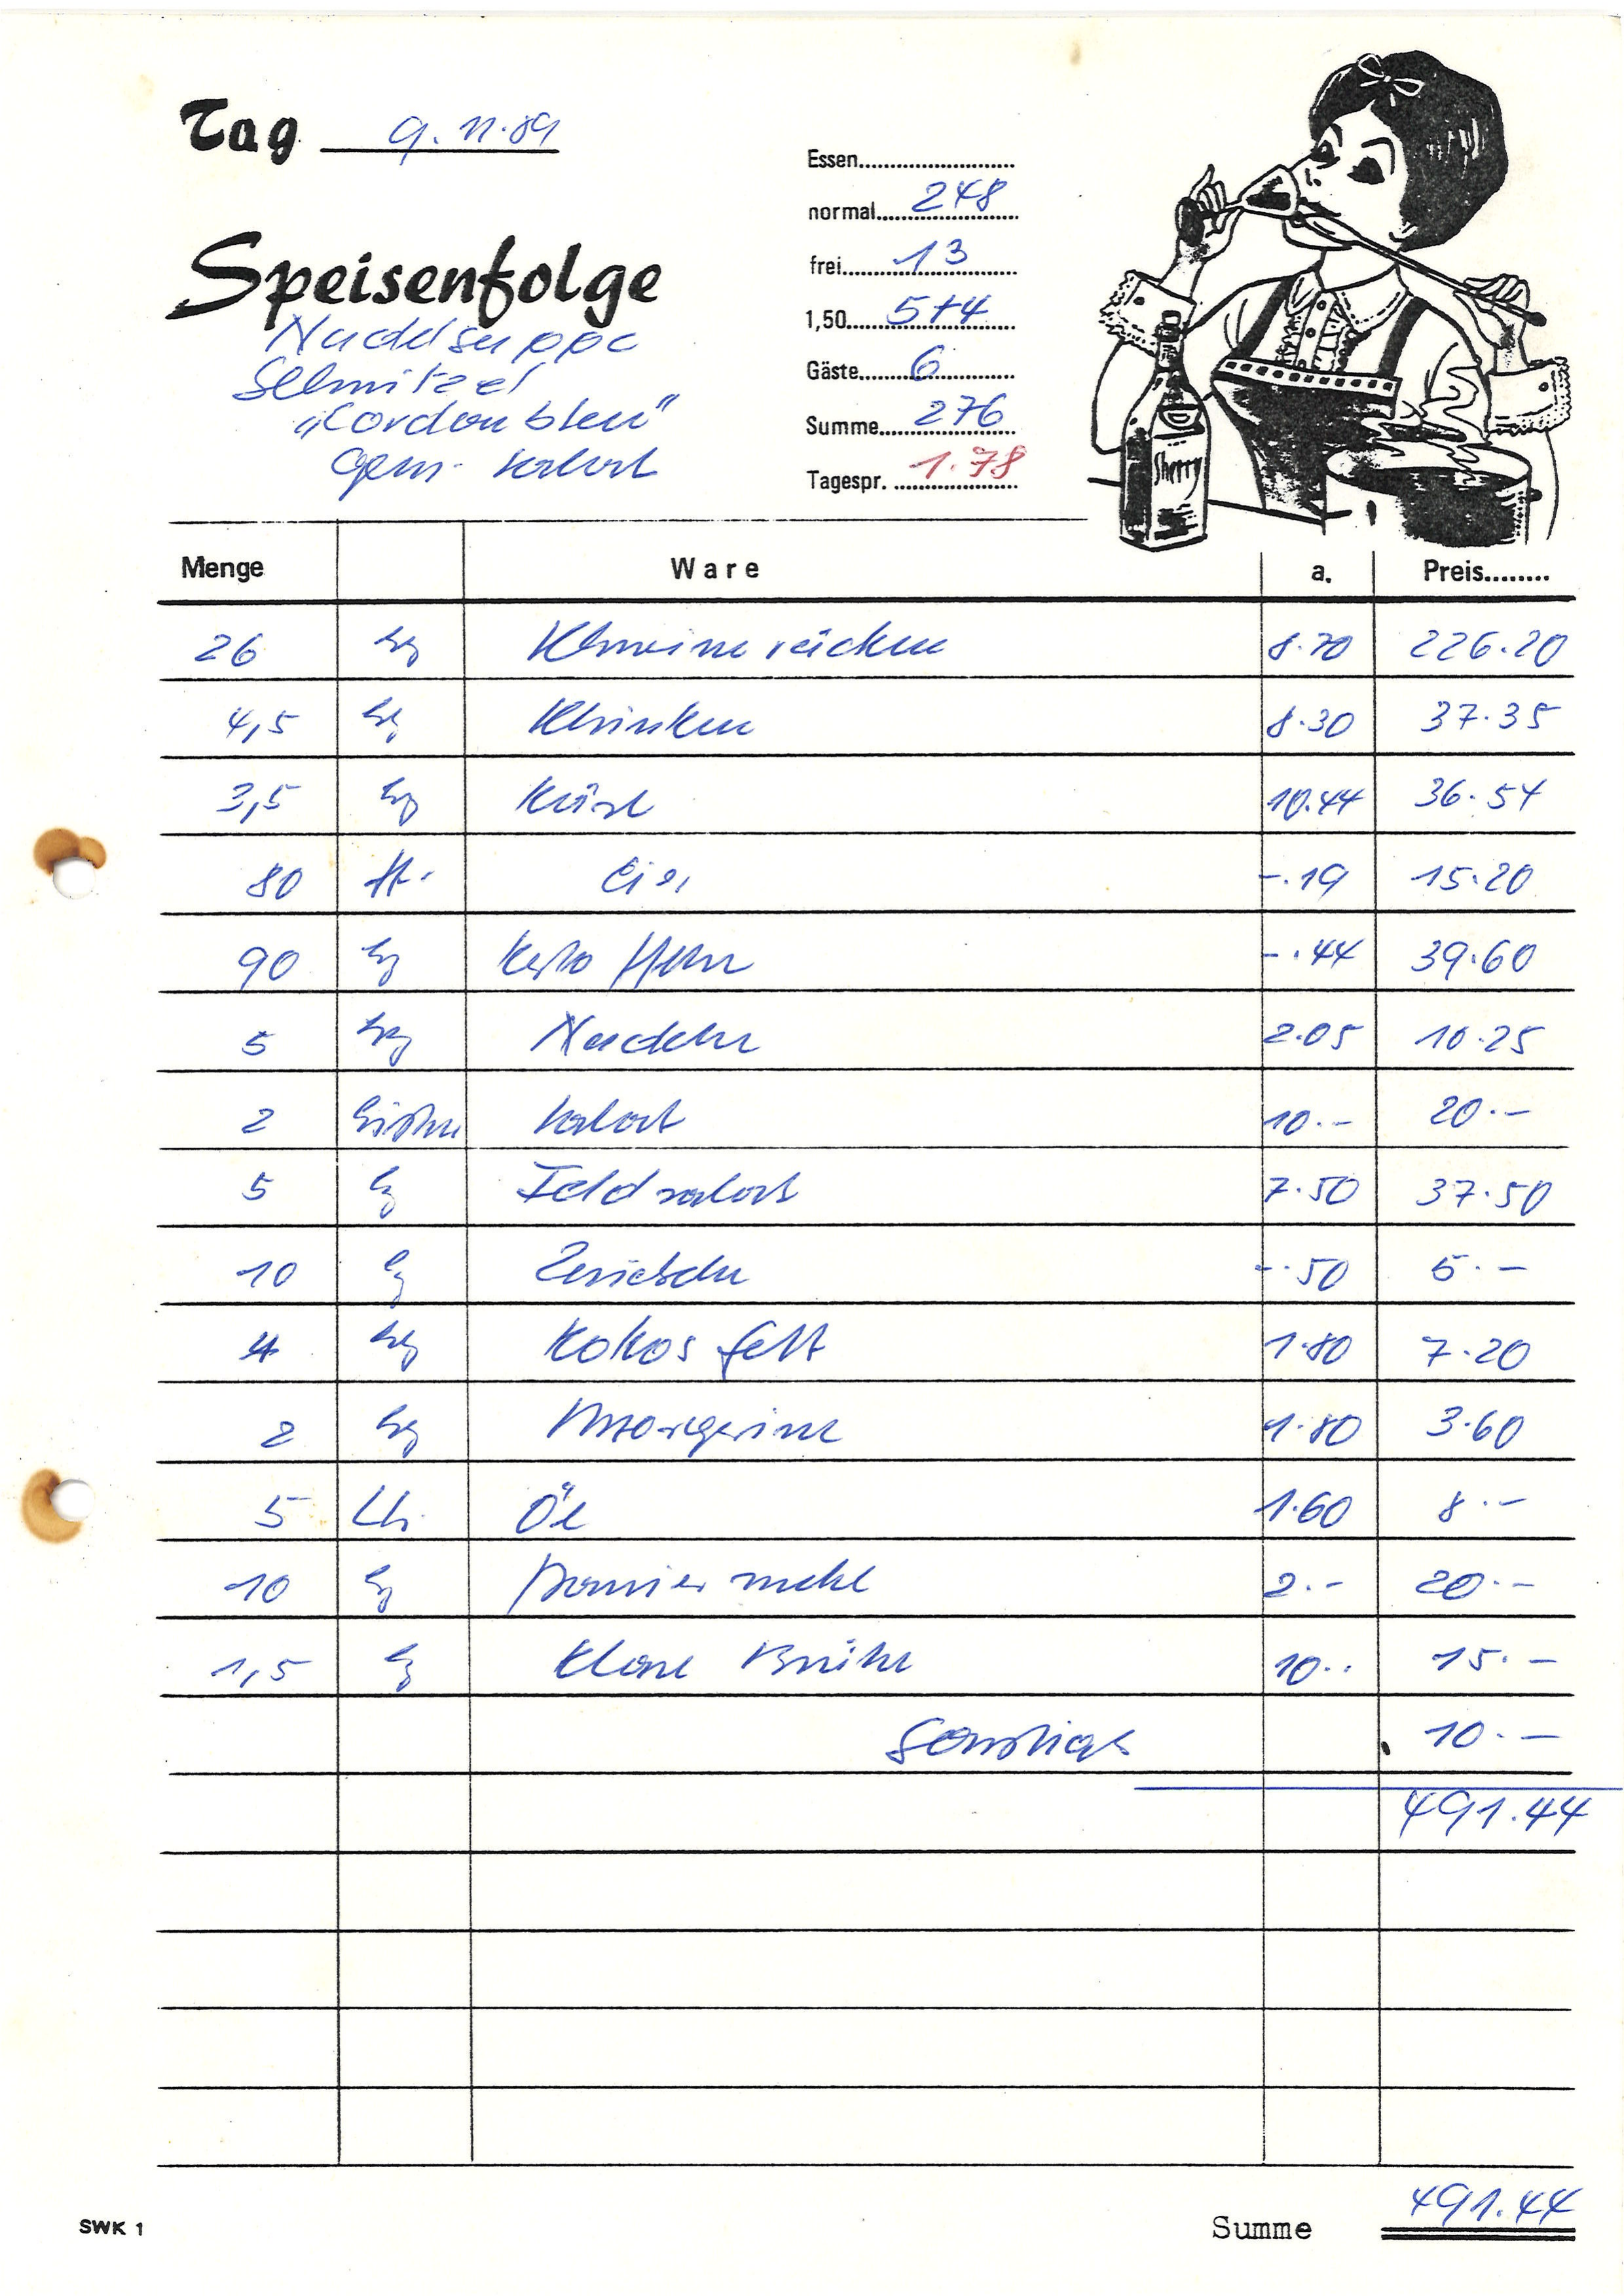 Tag 9.11.89
Speisenfolge
Nudelsuppe
Schnitzel
"Cordon bleu"
gem. Salat
Essen
normal 248
frei 13
1,50 5+4
Gäste 6
Summe 276
Tagespr. 1.78
Sherry
Menge Ware a. Preis
26 kg Schweinerücken 8.70 226.20
4,5 kg Schinken 8.30 37.35
3,5 kg Käse 10.44 36.54
80 St. Eier -.19 15.20
90 kg Kartoffeln -.44 39.60
5 kg Nudeln 2.05 10.25
2 Kisten Salat 10.- 20.-
5 kg Feldsalat 7.50 37.50
10 kg Zwiebeln -.50 5.-
4 kg Kokosfett 1.80 7.20
2 kg Margarine 1.80 3.60
5 Ltr. Öl 1.60 8.-
10 kg Paniermehl 2.- 20.-
1,5 kg Klare Brühe 10.- 15.-
Sonstiges 10.-
491.44
Summe 491.44
SWK 1